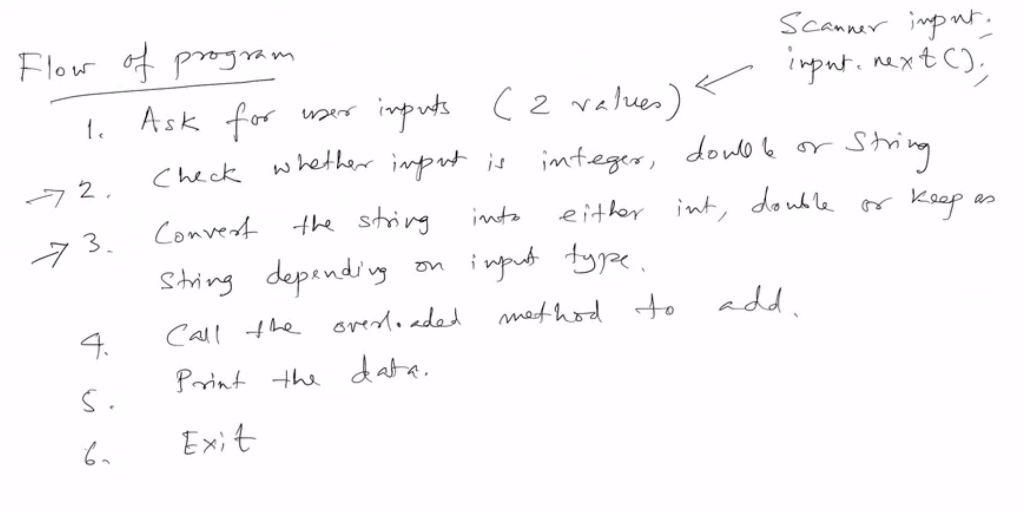 Scanner input;
input.next();
Flow of program
1. Ask for user inputs (2 values)
→ 2. Check whether input is integer, double or String
→ 3. Convert the string into either int, double or keep as
String depending on input type.
4. Call the overloaded method to add.
5. Print the data.
6. Exit